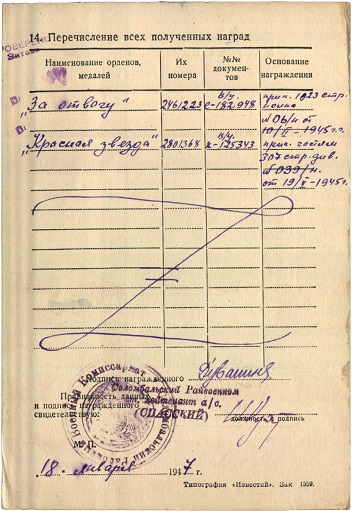 14. Перечисление всех полученных наград
Наименование орденов, медалей
Их номера
№№ документов
Основание награждения
„За отвагу“ 2461223 в/у. е-182.948 прик. 1023 стр.
№ 06/н от
10/V-1945 г.
„Красная звезда“ 2801368 в/у. 125343 прик. частям
307 стр. див.
№ 039/н.
от 19/V-1945 г.
Подпись награжденного
Правильность данных
и подпись награжденного
свидетельствую:
Соломбальский Райвоенком
лейтенант а/с.
(СПАССКИЙ)
должность и подпись
Военный Комиссариат
М. П.
18. января 1947 г.
Типография «Известий». Зак. 1559.